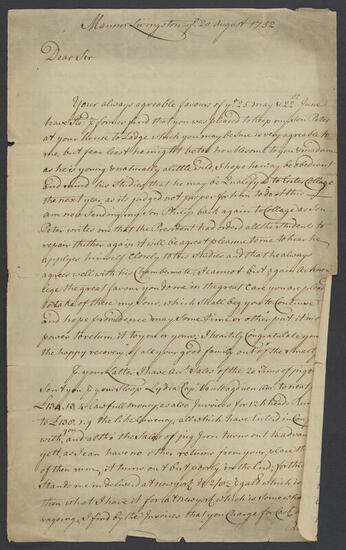 Mannor Livingston ye 20 August 1752
Dear Sir
Your always agreeable favours of ye 25 may & 22th June
have Recd ye former find that you was pleased to keep my Son Peter
at your house to Lodge which you may be sure is very agreeable to
me, but fear least he might be too troublesom to you & madam
as he is young & naturally a little wild, I hope he may be obedient
and mind his Studies that he may be Qualifyed to Enter Collage
the next year as its judged not proper for him to do it this
am now Sending my Son Philip back again to Collage as Son
Peter writes me that the President had orderd all the Students to
repair thither again it will be a great pleasure to me to hear he
applyes himself Closely to his Studies and that he always
agrees well with his Chambermate, I cannot but again acknow
lege the great favour you do me in the great Care you are pleasd
to take of these my Sons, which I shall beg you to Continue
and hope providence may Some time or other put it in my
power to return it to you or yours, I heartily Congratulate you on
the happy recovery of all your good family out of the Small
your Latter I have Acct Sales of the 20 Tons of pig
Sent you & your Sloop Lydia Capt
lawfull money, as also Invoices for 12 hhd Rum
the like Currency, all which have
with, and altho the Sales of pig Iron turns out to advan
yett as I can have no other returns from your place
of then rum, it turns out but poorly in the End, for this
Stands me in deliverd at New york
then what I have it for at New york, which is Somewhat
I find by the Invoices that you Charge for